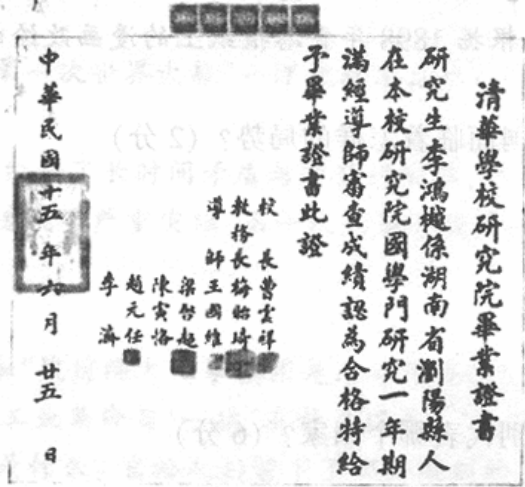 清華學校研究院畢業證書
研究生李鴻樾係湖南省瀏陽縣人
在本校研究院國學門研究一年期
滿經導師審查成績認為合格特給
予畢業證書此證
校 長曹雲祥
教務長梅貽琦
導 師王國維
梁啓超
陳寅恪
趙元任
李 濟
中華民國十五年六月廿五日